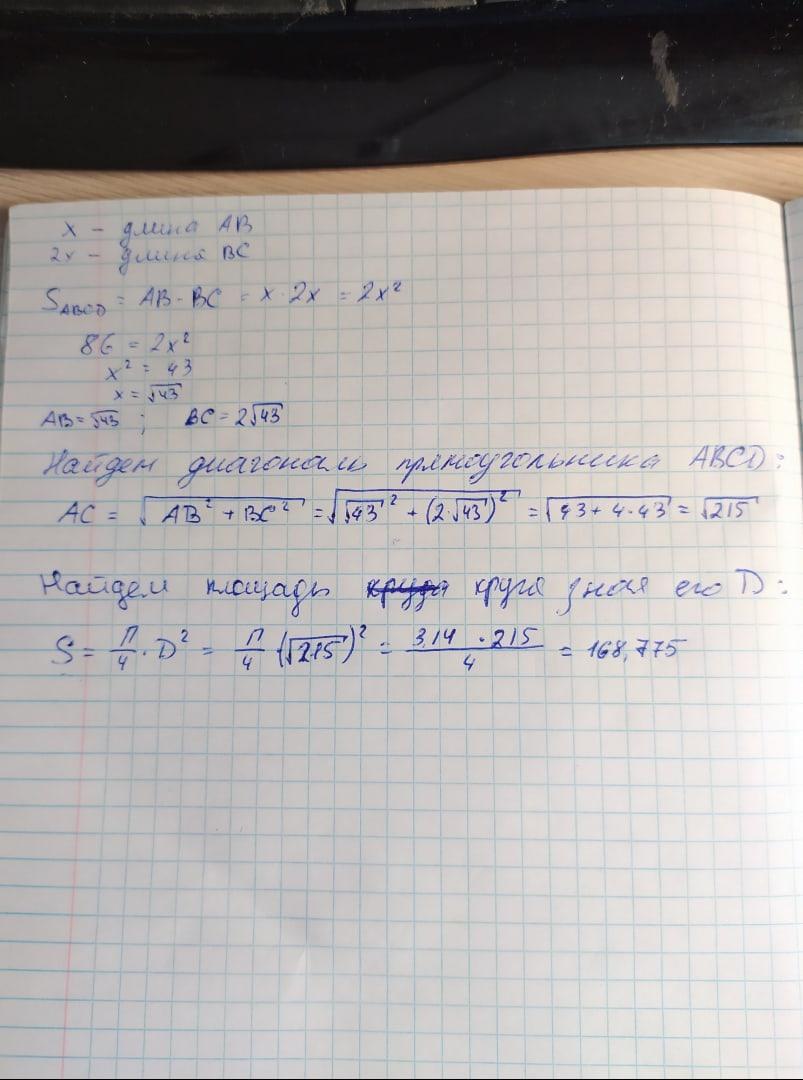 x - длина AB
2x - длина BC
S_ABCD = AB · BC = x · 2x = 2x²
86 = 2x²
x² = 43
x = √43
AB = √43 ; BC = 2√43
Найдем диагональ прямоугольника ABCD:
AC = √(AB² + BC²) = √(√43² + (2·√43)²) = √(43 + 4·43) = √215
Найдем площадь круга зная его D:
S = П/4 · D² = П/4 · (√215)² = 3.14 · 215 / 4 = 168,775